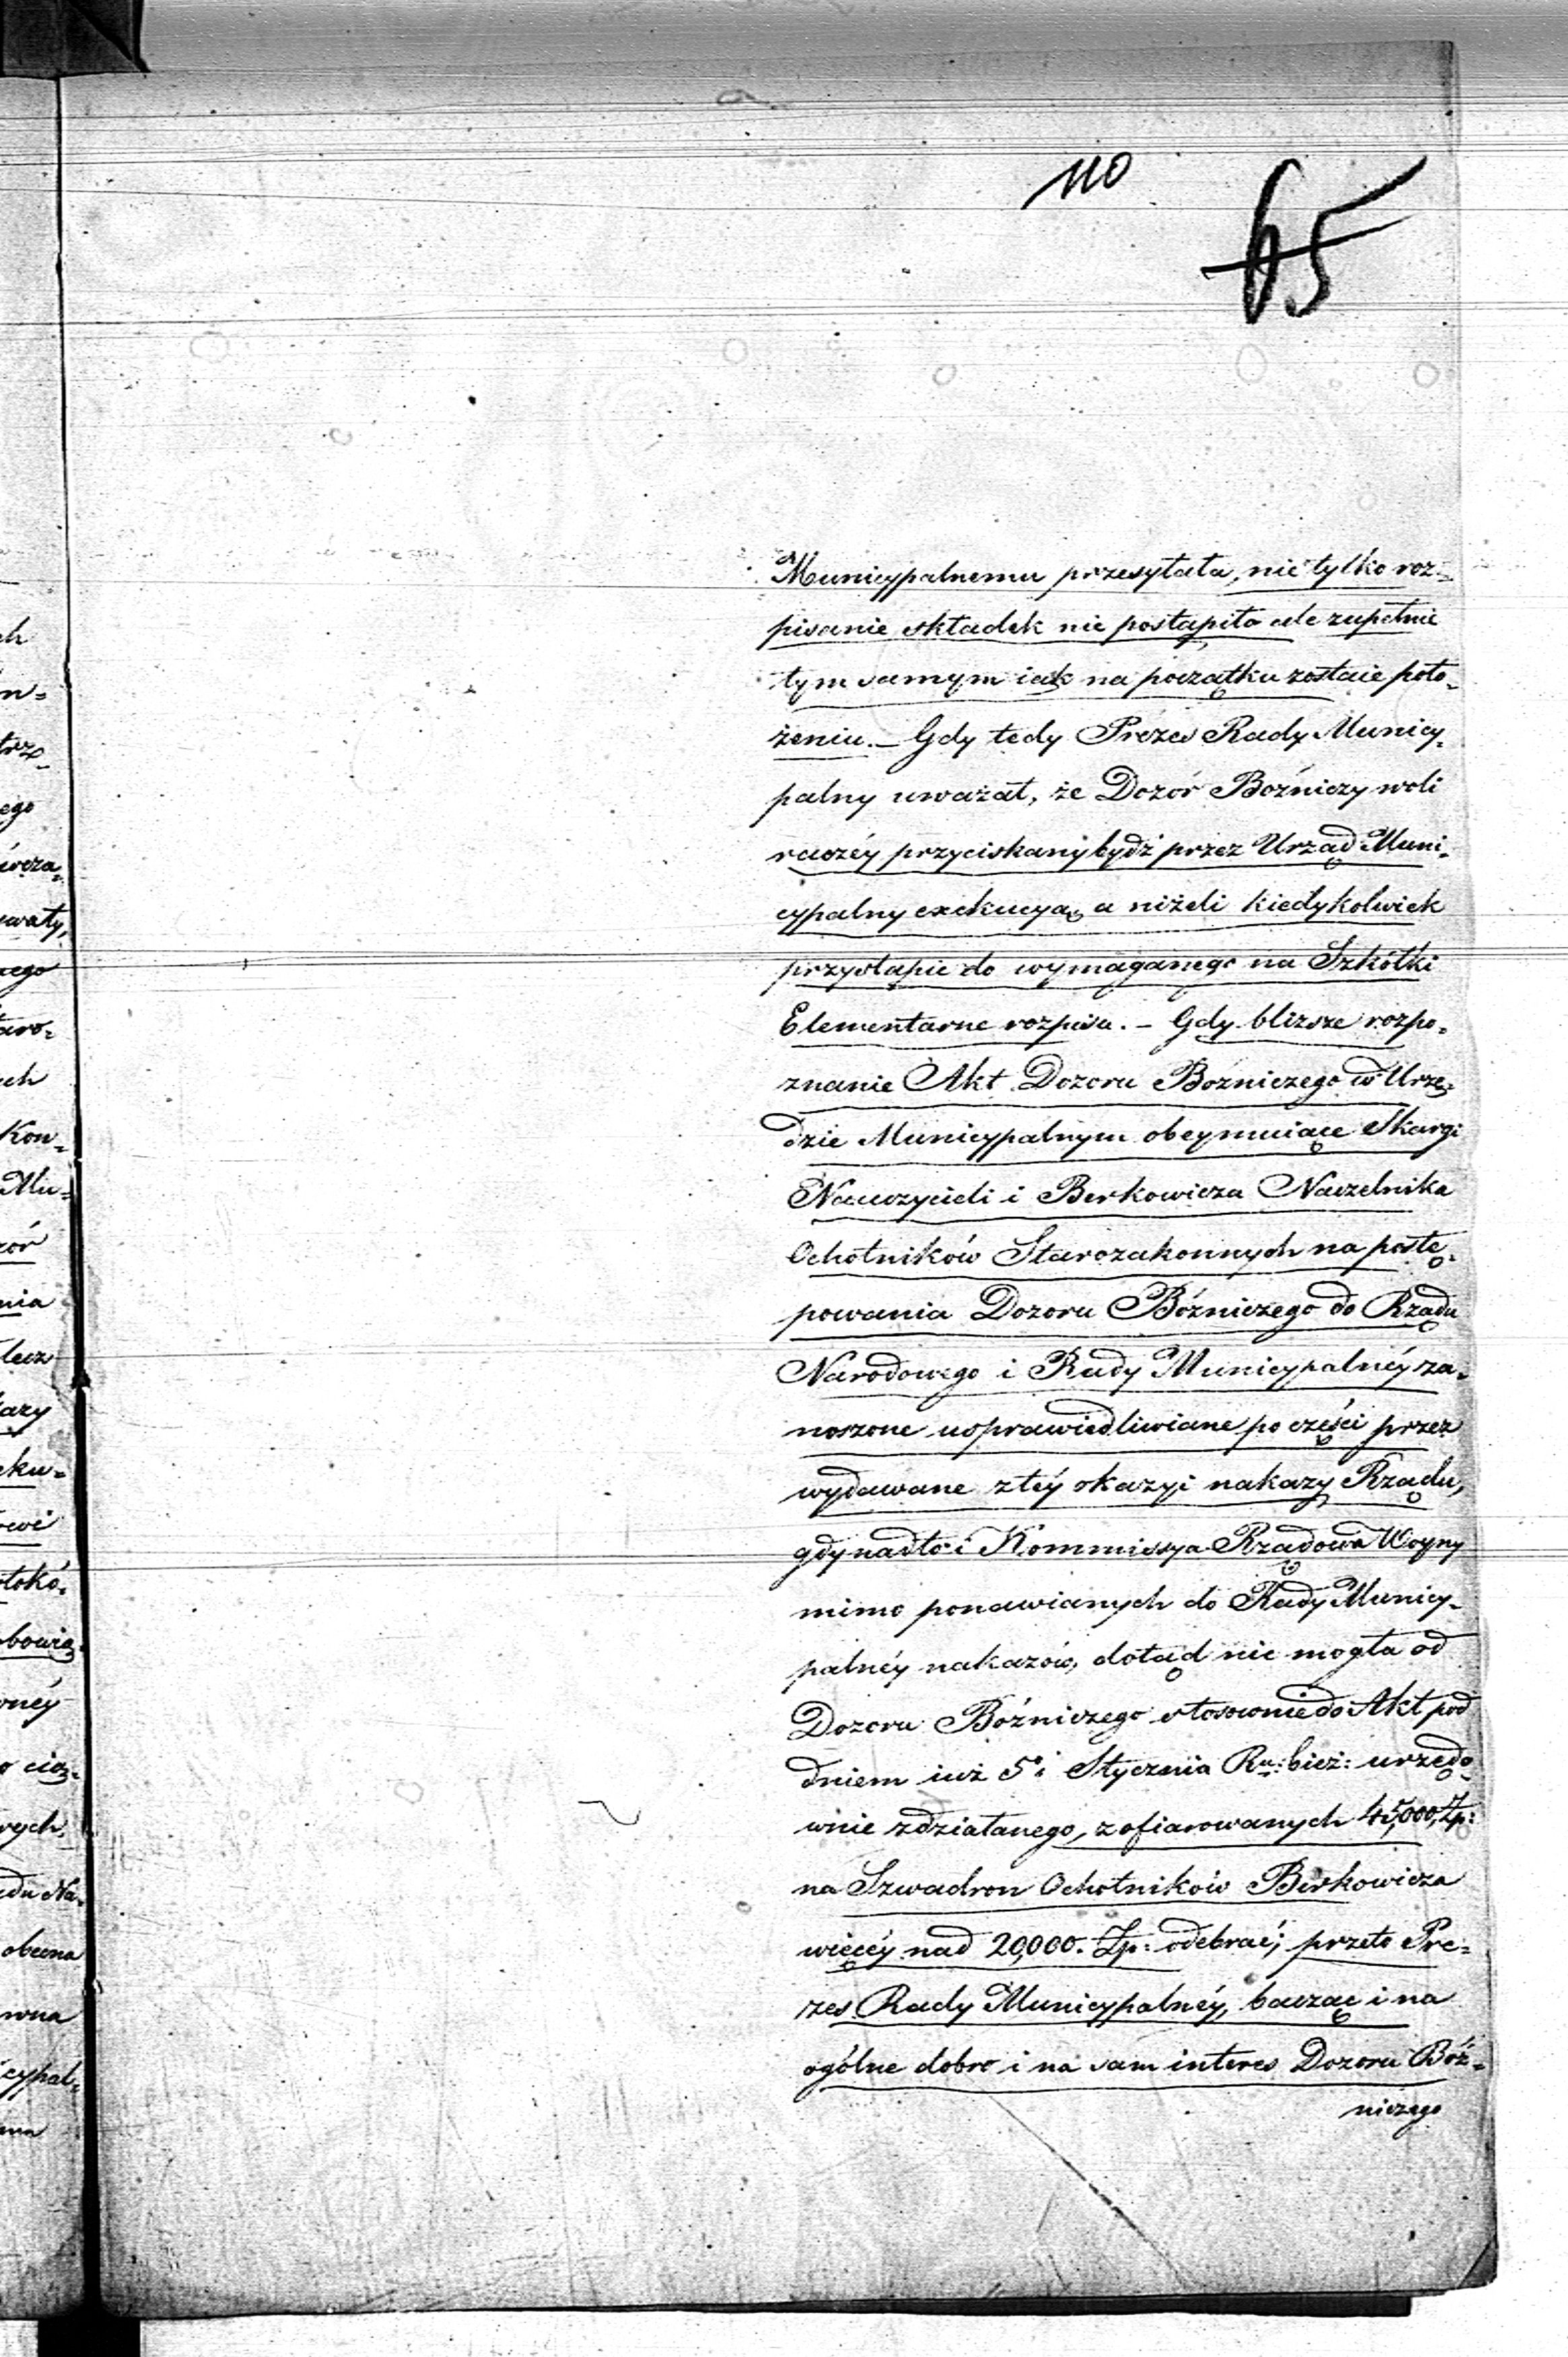 110
65
Municypalnemu przesyłała, nie tylko roz-
pisanie składek nie postąpiło ale zupełnie
tym samym iak na początku zostaie poło-
żeniu. – Gdy tedy Prezes Rady Municy-
palny uważał, że Dozór Bożniczy woli
raczéy przyciskany bydź przez Urząd Muni-
cypalny exekucyą, a niżeli kiedykolwiek
przystąpić do wymaganego na Szkółki
Elementarne rozpisu. – Gdy bliższe rozpo-
znanie Akt Dozoru Bożniczego w Urzę-
dzie Municypalnym obeymuiące Skargi
Nauczycieli i Berkowicza Naczelnika
Ochotników Starozakonnych na postę-
powania Dozoru Bóżniczego do Rządu
Narodowego i Rady Municypalnéy za-
noszone usprawiedliwiane po części przez
wydawane z téy okazyi nakazy Rządu,
gdy nadto i Kommissya Rządowa Woyny
mimo ponawianych do Rady Municy-
palnéy nakazów, dotąd nie mogła od
Dozoru Bóżniczego stosownie do Akt pod
dniem iuż 5° i Stycznia Ru: bież: urzędo-
wnie zdziałanego, zofiarowanych 45,000, Zp:
na Szwadron Ochotników Berkowicza
więcéy nad 20,000. Zp: odebrać; przeto Pre-
zes Rady Municypalnéy, bacząc i na
ogólne dobro i na sam interes Dozoru Bóż-
niczego